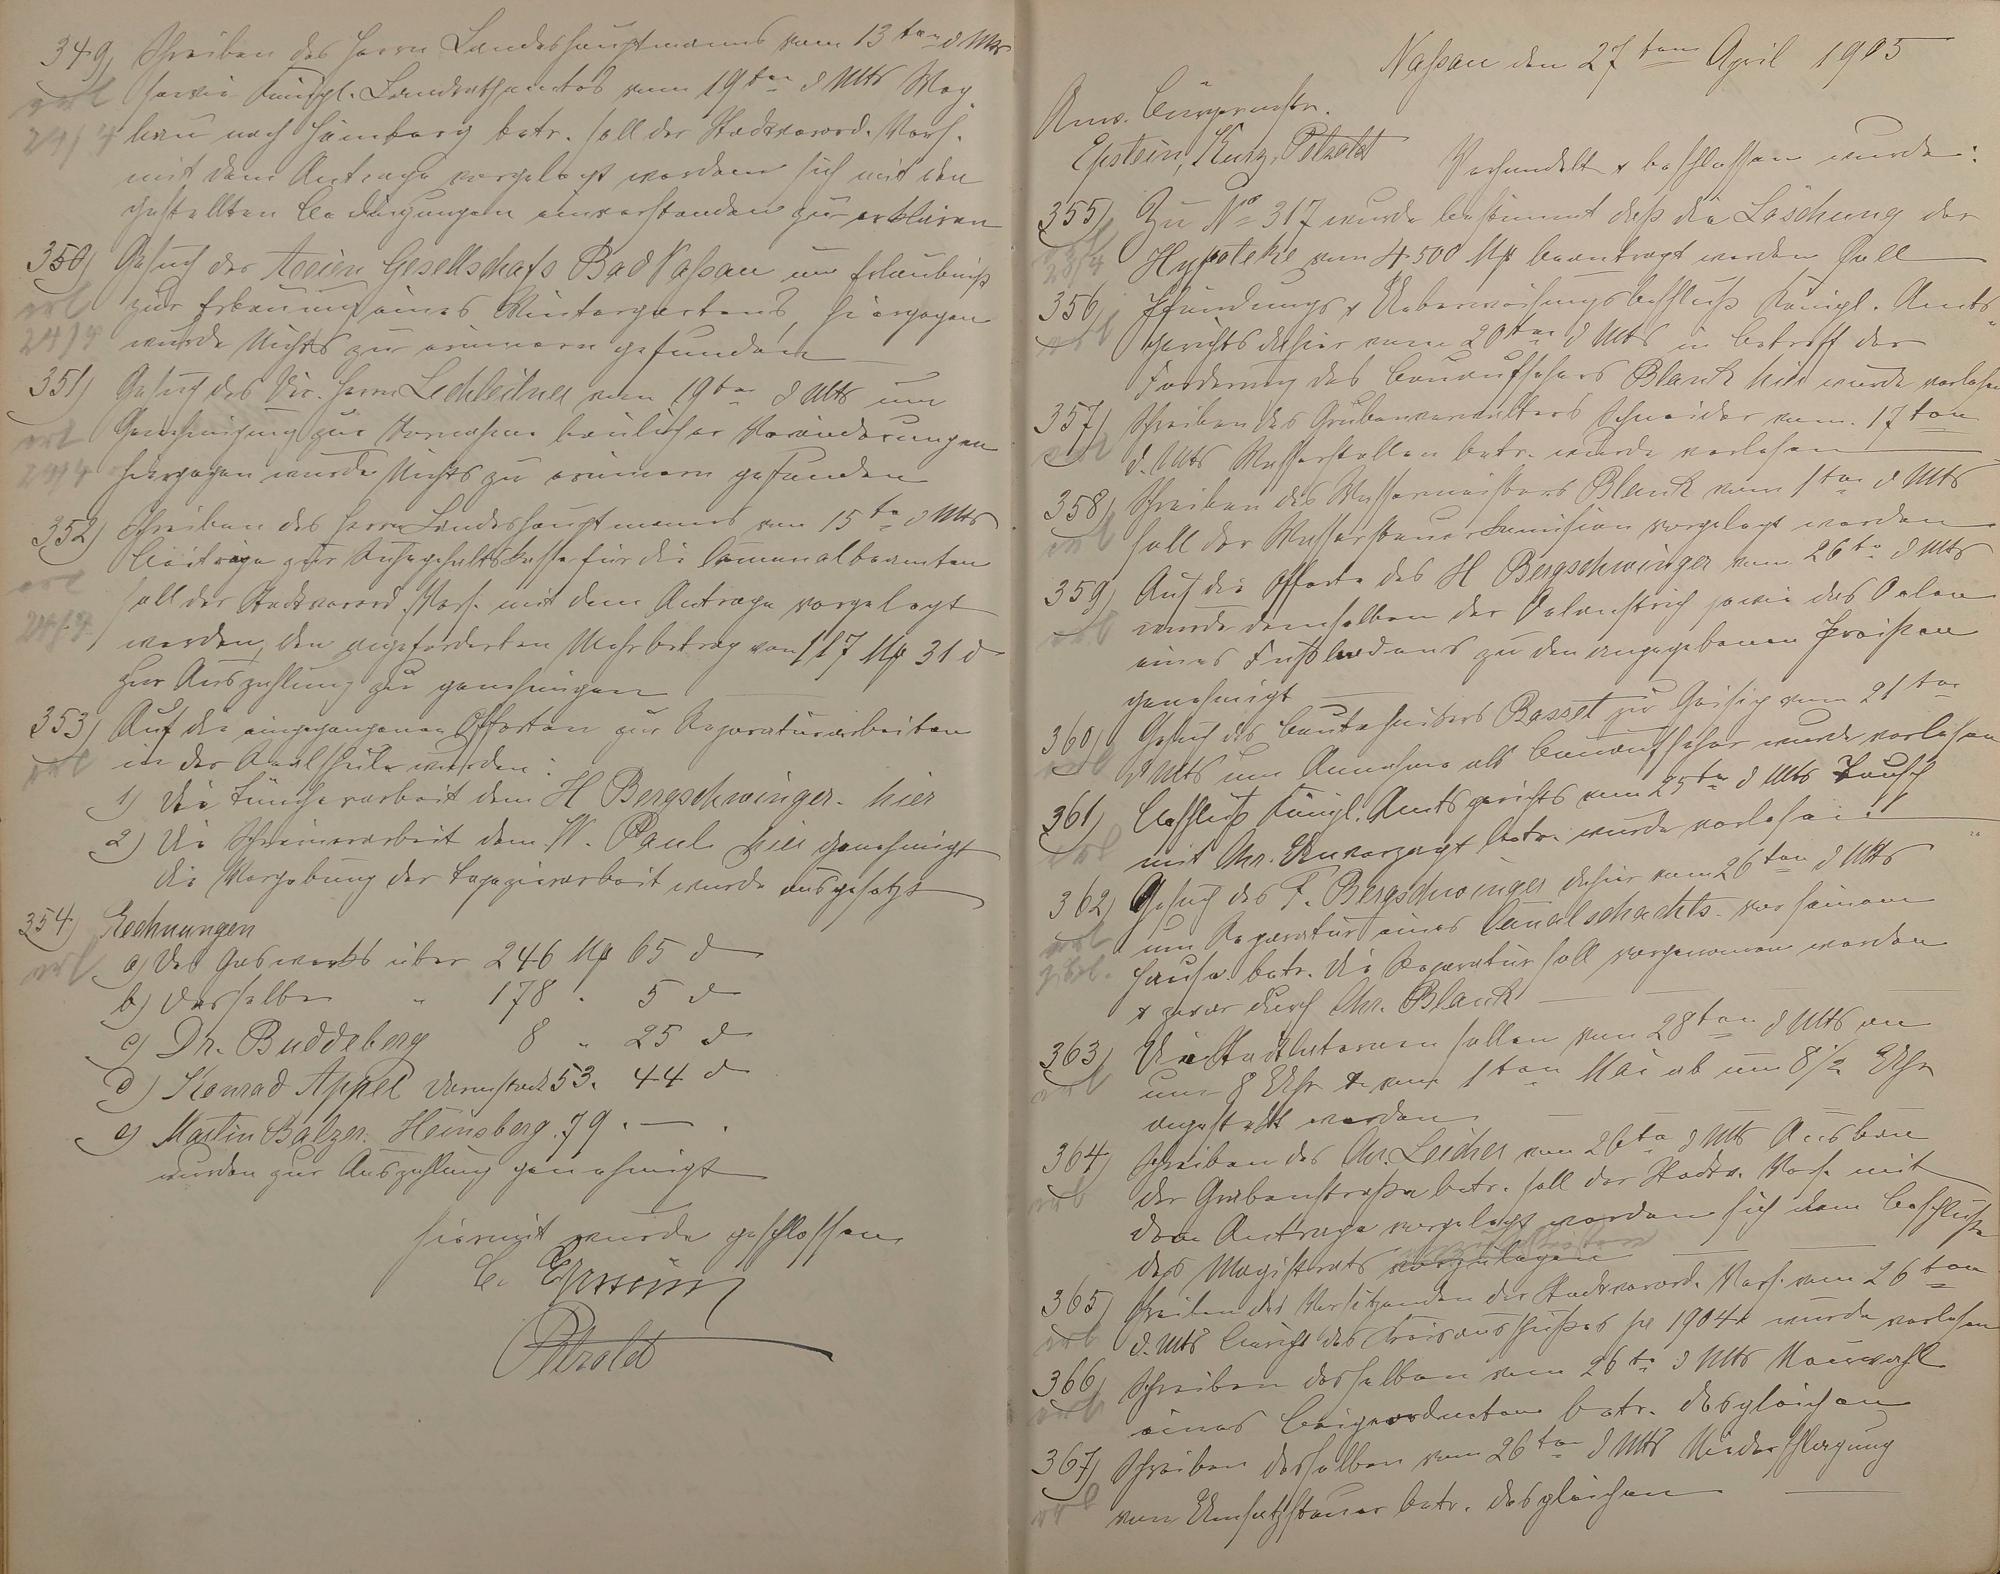 349) Schreiben des Herrn Landeshauptmanns vom 13ten d Mts
erl sowie Königl. Landrathsamtes vom 19ten d Mts Weg
24/4 bau nach Hömberg betr. soll der Stadtverord. Vers.
mit dem Antrage vorgelegt werden sich mit den
gestellten Bedingungen einverstanden zu erklären
350) Gesuch der Actien Gesellschaft Bad Nassau um Erlaubniß
erl zur Erbauung eines Wintergartens, hiergegen
24/4 wurde Nichts zu erinnern gefunden
351) Gesuch des Dir. Herrn Lechleitner vom 19ten d Mts um
erl Genehmigung zur Vornahme baulicher Veränderungen
24/4 hiergegen wurde Nichts zu erinnern gefunden
352) Schreiben des Herrn Landeshauptmanns vom 15ten d Mts
erl Beiträge zur Ruhegehaltskasse für die Communalbeamten
24/4 soll der Stadtverord. Vers. mit dem Antrage vorgelegt
werden, den angeforderten Mehrbetrag von 117 Mk 31 d
zur Auszahlung zu genehmigen
353) Auf die eingegangenen Offerten zur Reparaturarbeiten
erl in der Realschule wurden:
1) Die Tüncherarbeit dem H Bergschwinger hier
2) Die Schreinerarbeit dem W. Paul hier genehmigt
die Vergebung der Tapezierarbeit wurde ausgesetzt
354) Rechnungen
erl a) Des Gaswerks über 246 Mk 65 d
b) desselben " 178 . 5 d
c) Dr. Buddeberg 8 " 25 d
d) Konrad Appel Darmstadt 53. 44 d
e) Martin Balzer. Heinsberg. 79 . — .
wurden zur Auszahlung genehmigt
Hiermit wurde geschlossen
C. Epstein
Petzoldt
Nassau den 27ten April 1905
Anw. Bürgermstr.
Epstein, Kurz, Petzoldt
Verhandelt & beschlossen wurde:
355) Zu No 317 wurde bestimmt daß die Löschung der
erl 28/4 Hypoteke vom 4500 Mk beantragt werden soll
356) Pfändungs & Ueberweisungsbeschluß Königl. Amts-
erl gerichts dahier vom 20ten d Mts in betreff der
Forderung des Bauaufsehers Blank hier wurde verlesen
357) Schreiben des Grubenverwalters Schneider vom 17ten
erl d. Mts Wasserstollen betr. wurde verlesen
358) Schreiben des Wassermeisters Blank vom 1ten d Mts
erl soll der Wassersteuerkomission vorgelegt werden
359) Auf die Offerte des H Bergschwinger vom 26ten d Mts
erl wurde demselben der Oelanstrich sowie das Oelen
eines Fußbodens zu den angegebenen Preißen
genehmigt
360) Gesuch des Bautechnikers Basset zu Geisig vom 21ten
erl d Mts um Annahme als Bauaufseher wurde verlesen
361) Beschluß Königl. Amtsgerichts vom 25ten d Mts Tausch
erl mit Chr. Unverzagt betr. wurde verlesen
362) Gesuch des F. Bergschwinger dahier vom 26ten d Mts
erl um Reparatur eines Canalschachts vor seinem
Hause betr. die Reparatur soll vorgenommen werden
& zwar durch Chr. Blank
363) Die Stadtlaternen sollen vom 28ten d Mts an
erl um 8 Uhr & vom 1ten Mai ab um 8 1/2 Uhr
angesteckt werden
364) Schreiben des Chr. Leicher vom 26ten d Mts Ausbau
erl der Grabenstraße betr. soll der Stadtv. Vers. mit
dem Antrage vorgelegt werden sich dem Beschluße
des Magistrats vorzulegen
365) Schreiben des Vorsitzenden der Stadtverord. Vers. vom 26ten
erl d. Mts Bericht des Kreisausschußes pe 1904 wurde verlesen
366) Schreiben desselben vom 26ten d Mts Neuwahl
erl eines Beigeordneten betr. desgleichen
367) Schreiben desselben vom 26ten d Mts Niederschlagung
erl von Umsatzsteuer betr. desgleichen